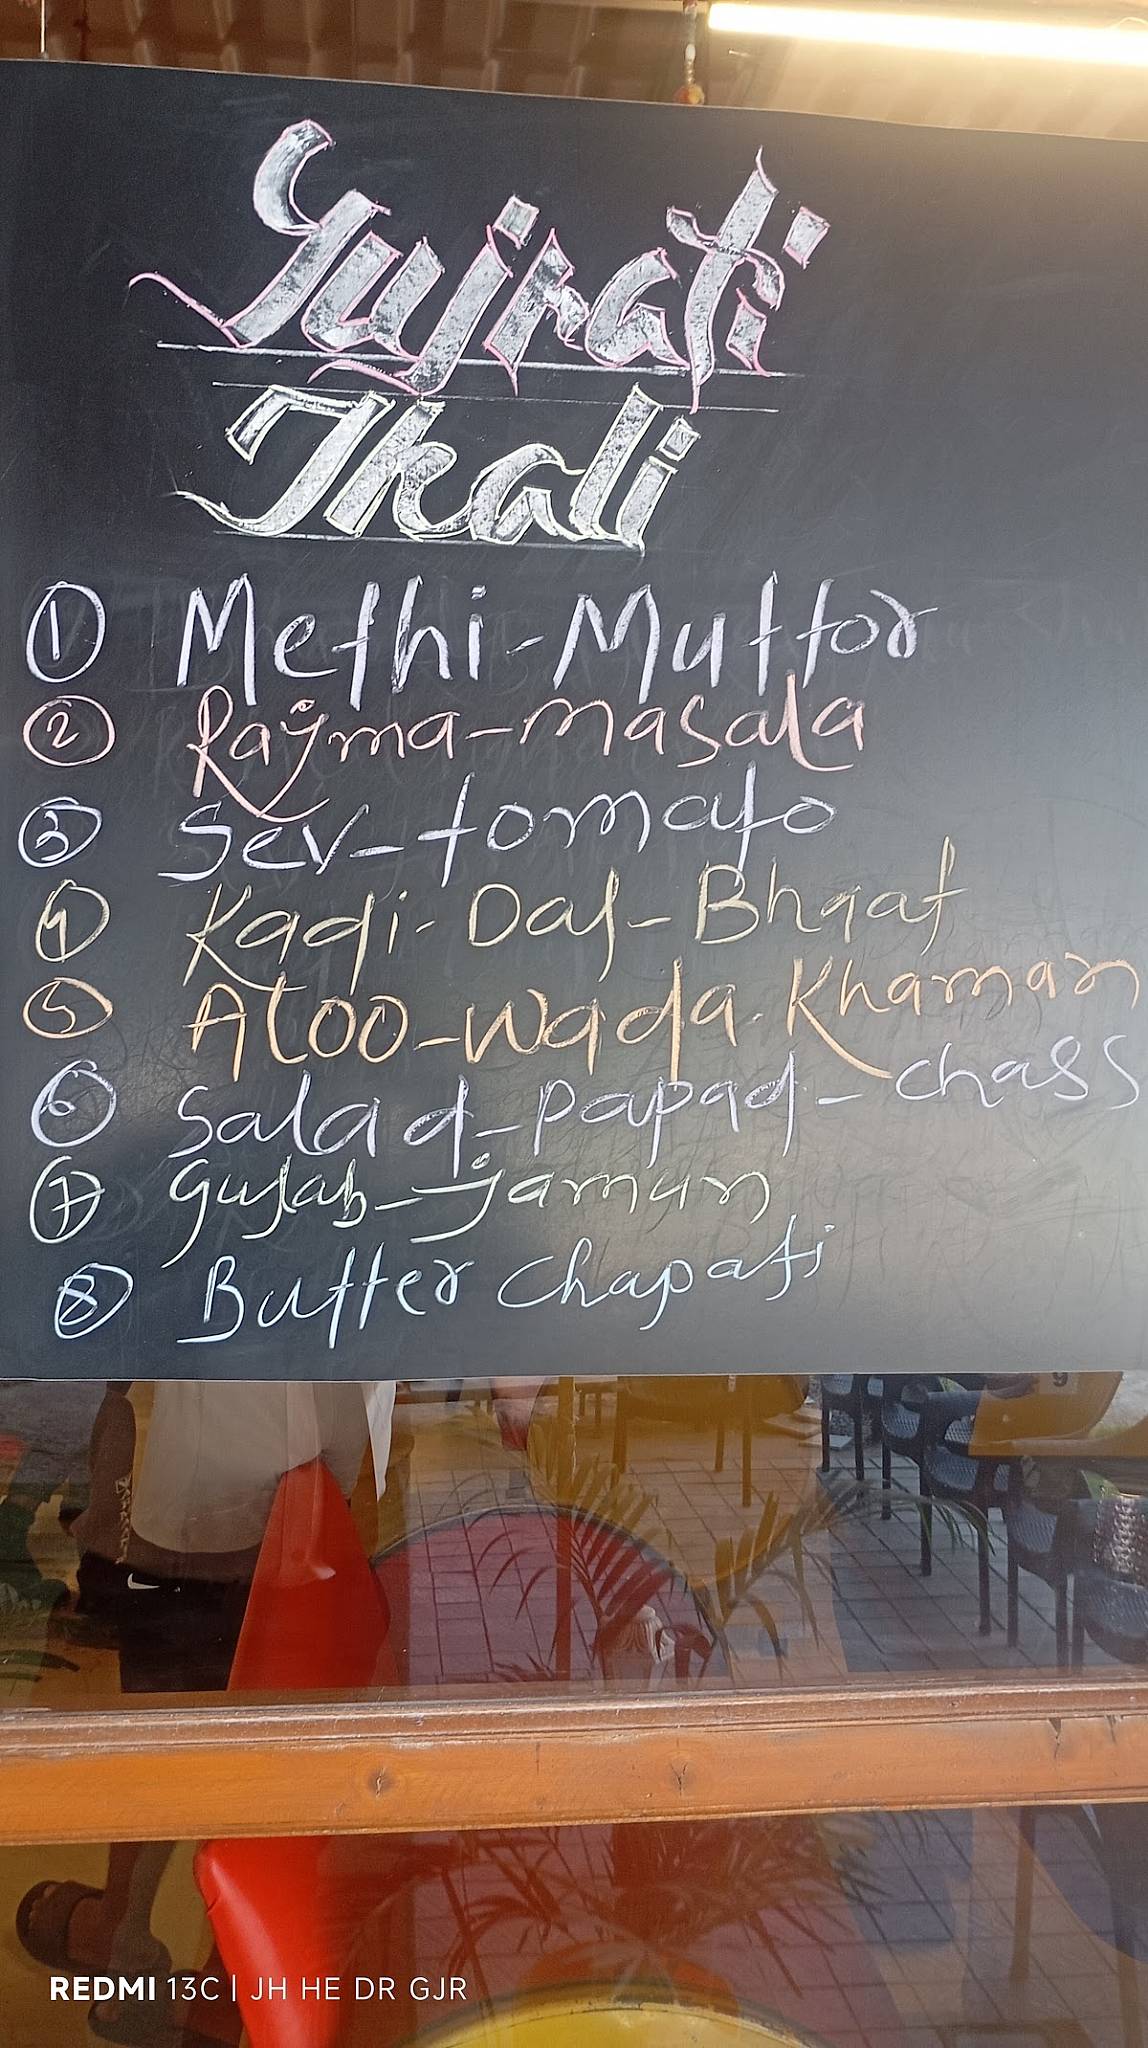 Gujrati
Thali
1 Methi-Muttor
2 Rajma-masala
3 Sev-tomato
4 Kadi-Dal-Bhaat
5 Aloo-Wada-Khaman
6 Salad-papad-chass
7 gulab-jamun
8 Butter chapati
REDMI 13C | JH HE DR GJR